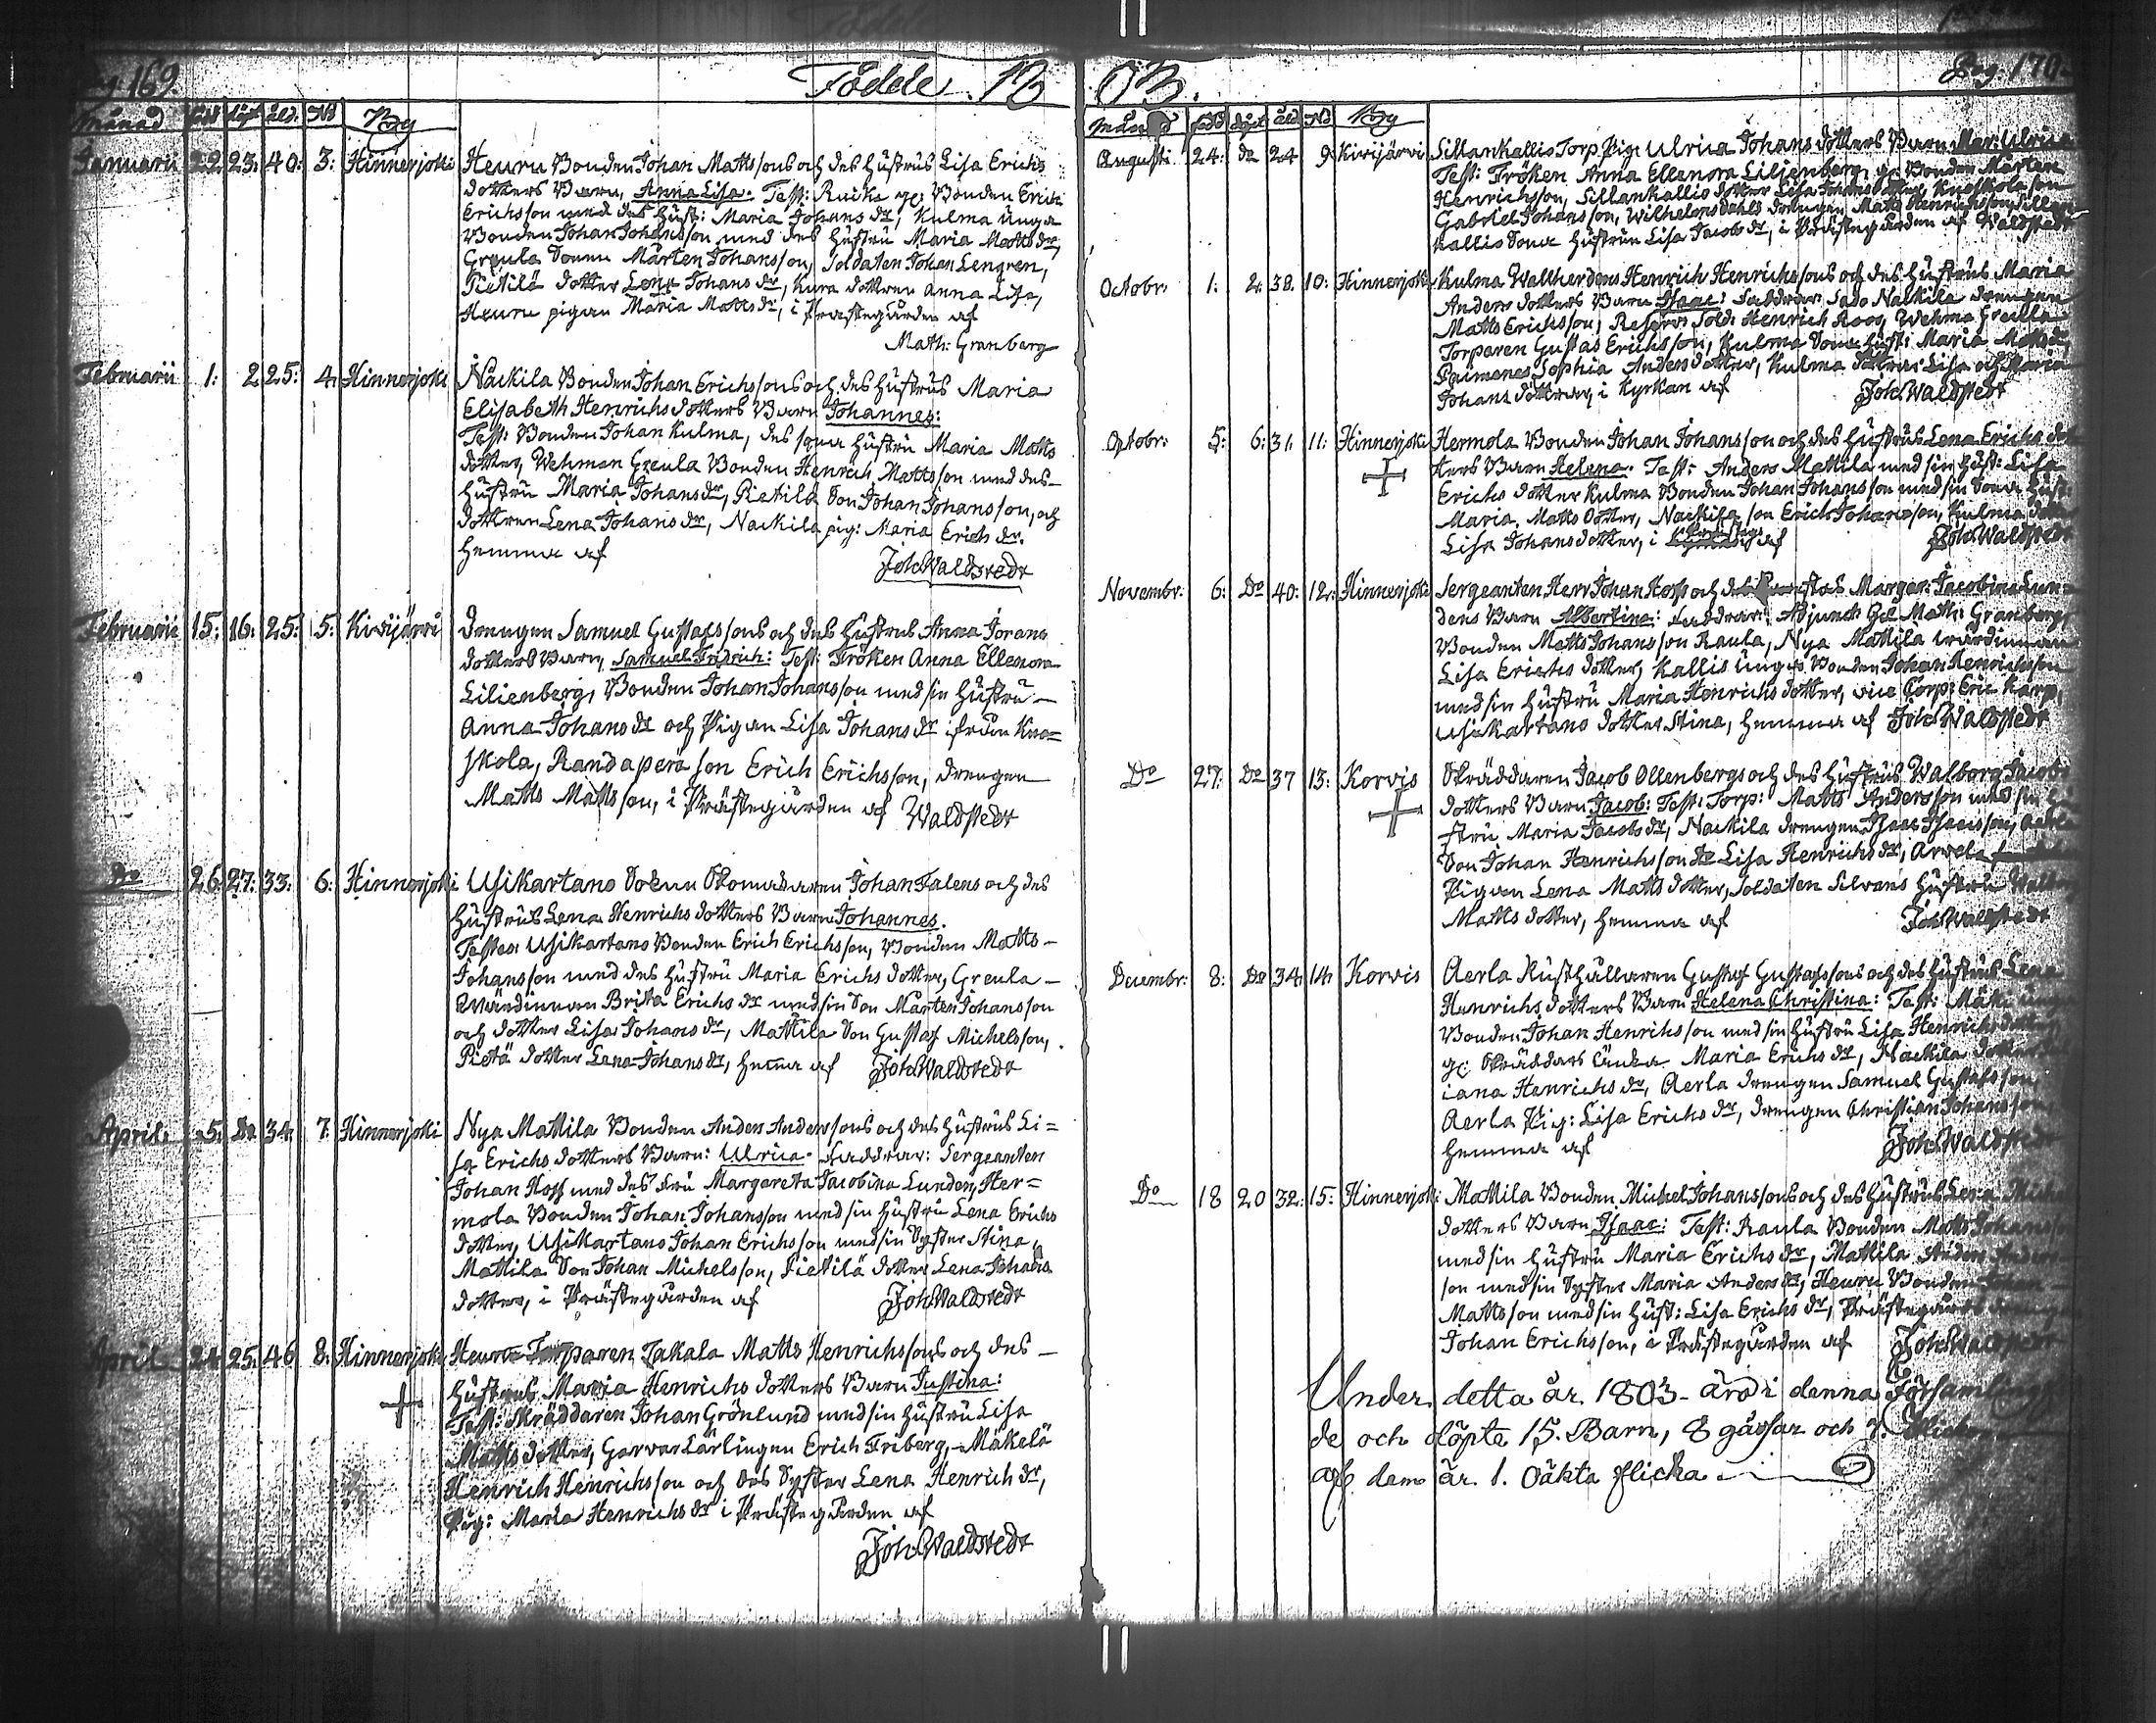 Pag. 169.
Födde 18
Månad född döpt åld. No By
Januarii 22. 23. 40. 3. Hinnerjoki Heuru Bonden Johan Mattssons och des hustrus Lisa Erichs
dotters Barn, Anna Lisa. Test: Bonden Erich
Erichsson med des hust: Maria Johans dr, Kulma unga
Bonden Johan Johansson med des hustru Maria Matts dr,
Greula Sonen Mårten Johansson, Soldaten Johan Lengren,
Pietilä dotter Lena Johans dr, Kura dottren Anna Lisa,
Heuru pigan Maria Matts dr, i Prästegården af
Math: Granberg
Februarii 1. 2 25. 4. Hinnerjoki Näckilä Bonden Johan Erichssons och des hustrus Maria
Elisabeth Henrichs dotters Barn Johannes:
Test: Bonden Johan Kulma, des sona hustru Maria Matts
dotter, Wehman Greula Bonden Henrich Mattsson med des
hustru Maria Johans dr, Pietilä Son Johan Johansson, och
dottren Lena Johans dr, Nackila pig: Maria Erich dr.
hemma af
Joh. Waldstedt
Februarii 15. 16. 25. 5. Kivijärvi Drengen Samuel Gustafssons och des hustrus Anna Jorans
dotters Barn, Samuel Fridrich: Test: Fröken Anna Ellenora
Lilienberg, Bonden Johan Johansson med sin hustru
Anna Johans dr och Pigan Lisa Johans dr ifrån Kno=
skola, Randaperä son Erich Erichsson, drengen
Matts Mattsson, i Prästegården af Waldstedt
Do 26. 27. 33. 6. Hinnerjoki Usikartano Sokn Skomakaren Johan Talens och des
hustrus Lena Henrichs dotters Barn Johannes.
Testes: Usikartano Bonden Erich Erichsson, Bonden Matts
Johansson med des hustru Maria Erichs dotter, Greula
Wärdinnan Brita Erichs dr med sin Son Mårten Johansson
och dotter Lisa Johans dr, Mattila Son Gustaf Michelsson,
Pietä dotter Lena Johans dr, hema af Joh. Waldstedt
April. 5. Do 34. 7. Hinnerjoki Nya Mattila Bonden Anders Anderssons och des hustrus Li=
sa Erichs dotters Barn: Ulrica. Faddrar: Sergeanten
Johan Hopp med des Fru Margareta Jacobina Lunden, Her=
mola Bonden Johan Johansson med sin hustru Lena Erichs
dotter, Usikartano Johan Erichsson med sin Syster Stina,
Mattila Son Johan Michelsson, Pietilä dotter Lena Johans
dotter, i Prästegården af Joh. Waldstedt
April. 24. 25. 46 8. Hinnerjoki Heuru Torparen Takala Matts Henrichssons och des
hustrus Maria Henrichs dotters Barn Justina:
Test: Skräddaren Johan Grönlund med sin hustru Lisa
Matts dotter, Garvar Lärlingen Erich Friberg, Mäkelä
Henrich Henrichsson och des Syster Lena Henrich dr,
Pig: Maria Henrichs dr i Prästegården af
Joh. Waldstedt
03.
Pag. 170.
Månad född döpt åld No By
Augusti 24. do 24 9. Kivijärvi Sillankallis Torp. Pig: Ulrica Johans dotters Barn Mar: Ulrica
Test: Fröken Anna Ellenora Lilienberg, gl. Bonden Mårten
Henrichsson, Sillankallis dotter Lisa Johans dotter, Knoskola son
Gabriel Johansson, Wilhelmsdahls drengen Matts Henrichsson, Sillan
kallis Sona hustrun Lisa Jacobs dr, i Prästegården af Waldstedt
Octobr. 1. 2. 38. 10. Hinnerjoki Kulma Wallherdens Henrich Henrichssons och des hustrus Maria
Anders dotters Barn Isaac: Faddrar: Sado Nackila drengen
Matts Erichsson, Reserv: Sold: Henrich Roos, Wehma Greula
Torparen Gustas Erichsson, Kulma Sona hust: Maria Matts
Paimenes Sophia Anders dotter, Kulma döttrar Lisa och Maria
Johans döttrar, i Kyrkan af Joh. Waldstedt
Octobr. 5. 6. 31. 11. Hinnerjoki Hermola Bonden Johan Johansson och des hustrus Lena Erichs dot
ters Barn Helena. Test: Anders Mattila med sin hust: Lisa
Erichs dotter Kulma Bonden Johan Johansson med sin Sona hust:
Maria Matts dotter, Nackila son Erich Johansson, Kulma dotter
Lisa Johans dotter, i af Joh. Waldstedt
Novembr. 6. Do 40. 12. Hinnerjoki Sergeanten Herr Johan Hopp och des Margar: Jacobina Lun=
dens Barn Albertina: Faddrar: Adjunct Gel Math: Granberg
Bonden Matts Johansson Raula, Nya Mattila Wärdinnan
Lisa Erichs dotter, Kallis unga Bonden Johan Henrichsson
med sin hustru Maria Henrichs dotter, vice Corp: Eric Karp,
Usikartano dotter Stina, hemma af Joh. Waldstedt
Do 27. Do 37 13. Korvis Skräddaren Jacob Ollenbergs och des hustrus Walborg Jacobs
dotters Barn Jacob: Test: Torp: Matts Andersson med sin hu
stru Maria Jacobs dr, Nackila drengen Isaac Isacsson, Aerla
Son Johan Henrichsson do Lisa Henrichs dr, Arvela
Pigan Lena Matts dotter, Soldaten Silvans hustru Walborg
Matts dotter, hemma af Joh. Waldstedt
Decembr. 8. Do 34. 14. Korvis Aerla Rusthållaren Gustaf Gustafssons och des hustrus Lena
Henrichs dotters Barn Helena Christina: Test: Mäki unga
Bonden Johan Henrichsson med sin hustru Lisa Henrichs dotter
gl: Skräddars Enka Maria Erichs dr, Nackila dotter
iana Henrichs dr, Aerla drengen Samuel Gustafsson,
Aerla Pig: Lisa Erichs dr, drengen Christian Johansson
hemma af Joh. Waldstedt
Do 18 20 32. 15. Hinnerjoki Mattila Bonden Michel Johanssons och des hustrus Lena
dotters Barn Isaac: Test: Raula Bonden Matts Johan
med sin hustru Maria Erichs dr, Mattila Anders Anders
son med sin Syster Maria Anders dr, Heuru Bonden
Mattsson med sin hust: Lisa Erichs dr, Prästegårds
Johan Erichsson, i Prästegården af Joh. Waldstedt
Under detta år 1803 äro i denna Församling
de och döpte 15. Barn, 8 gåssar och 7.
af dem är 1. Oäkta flicka